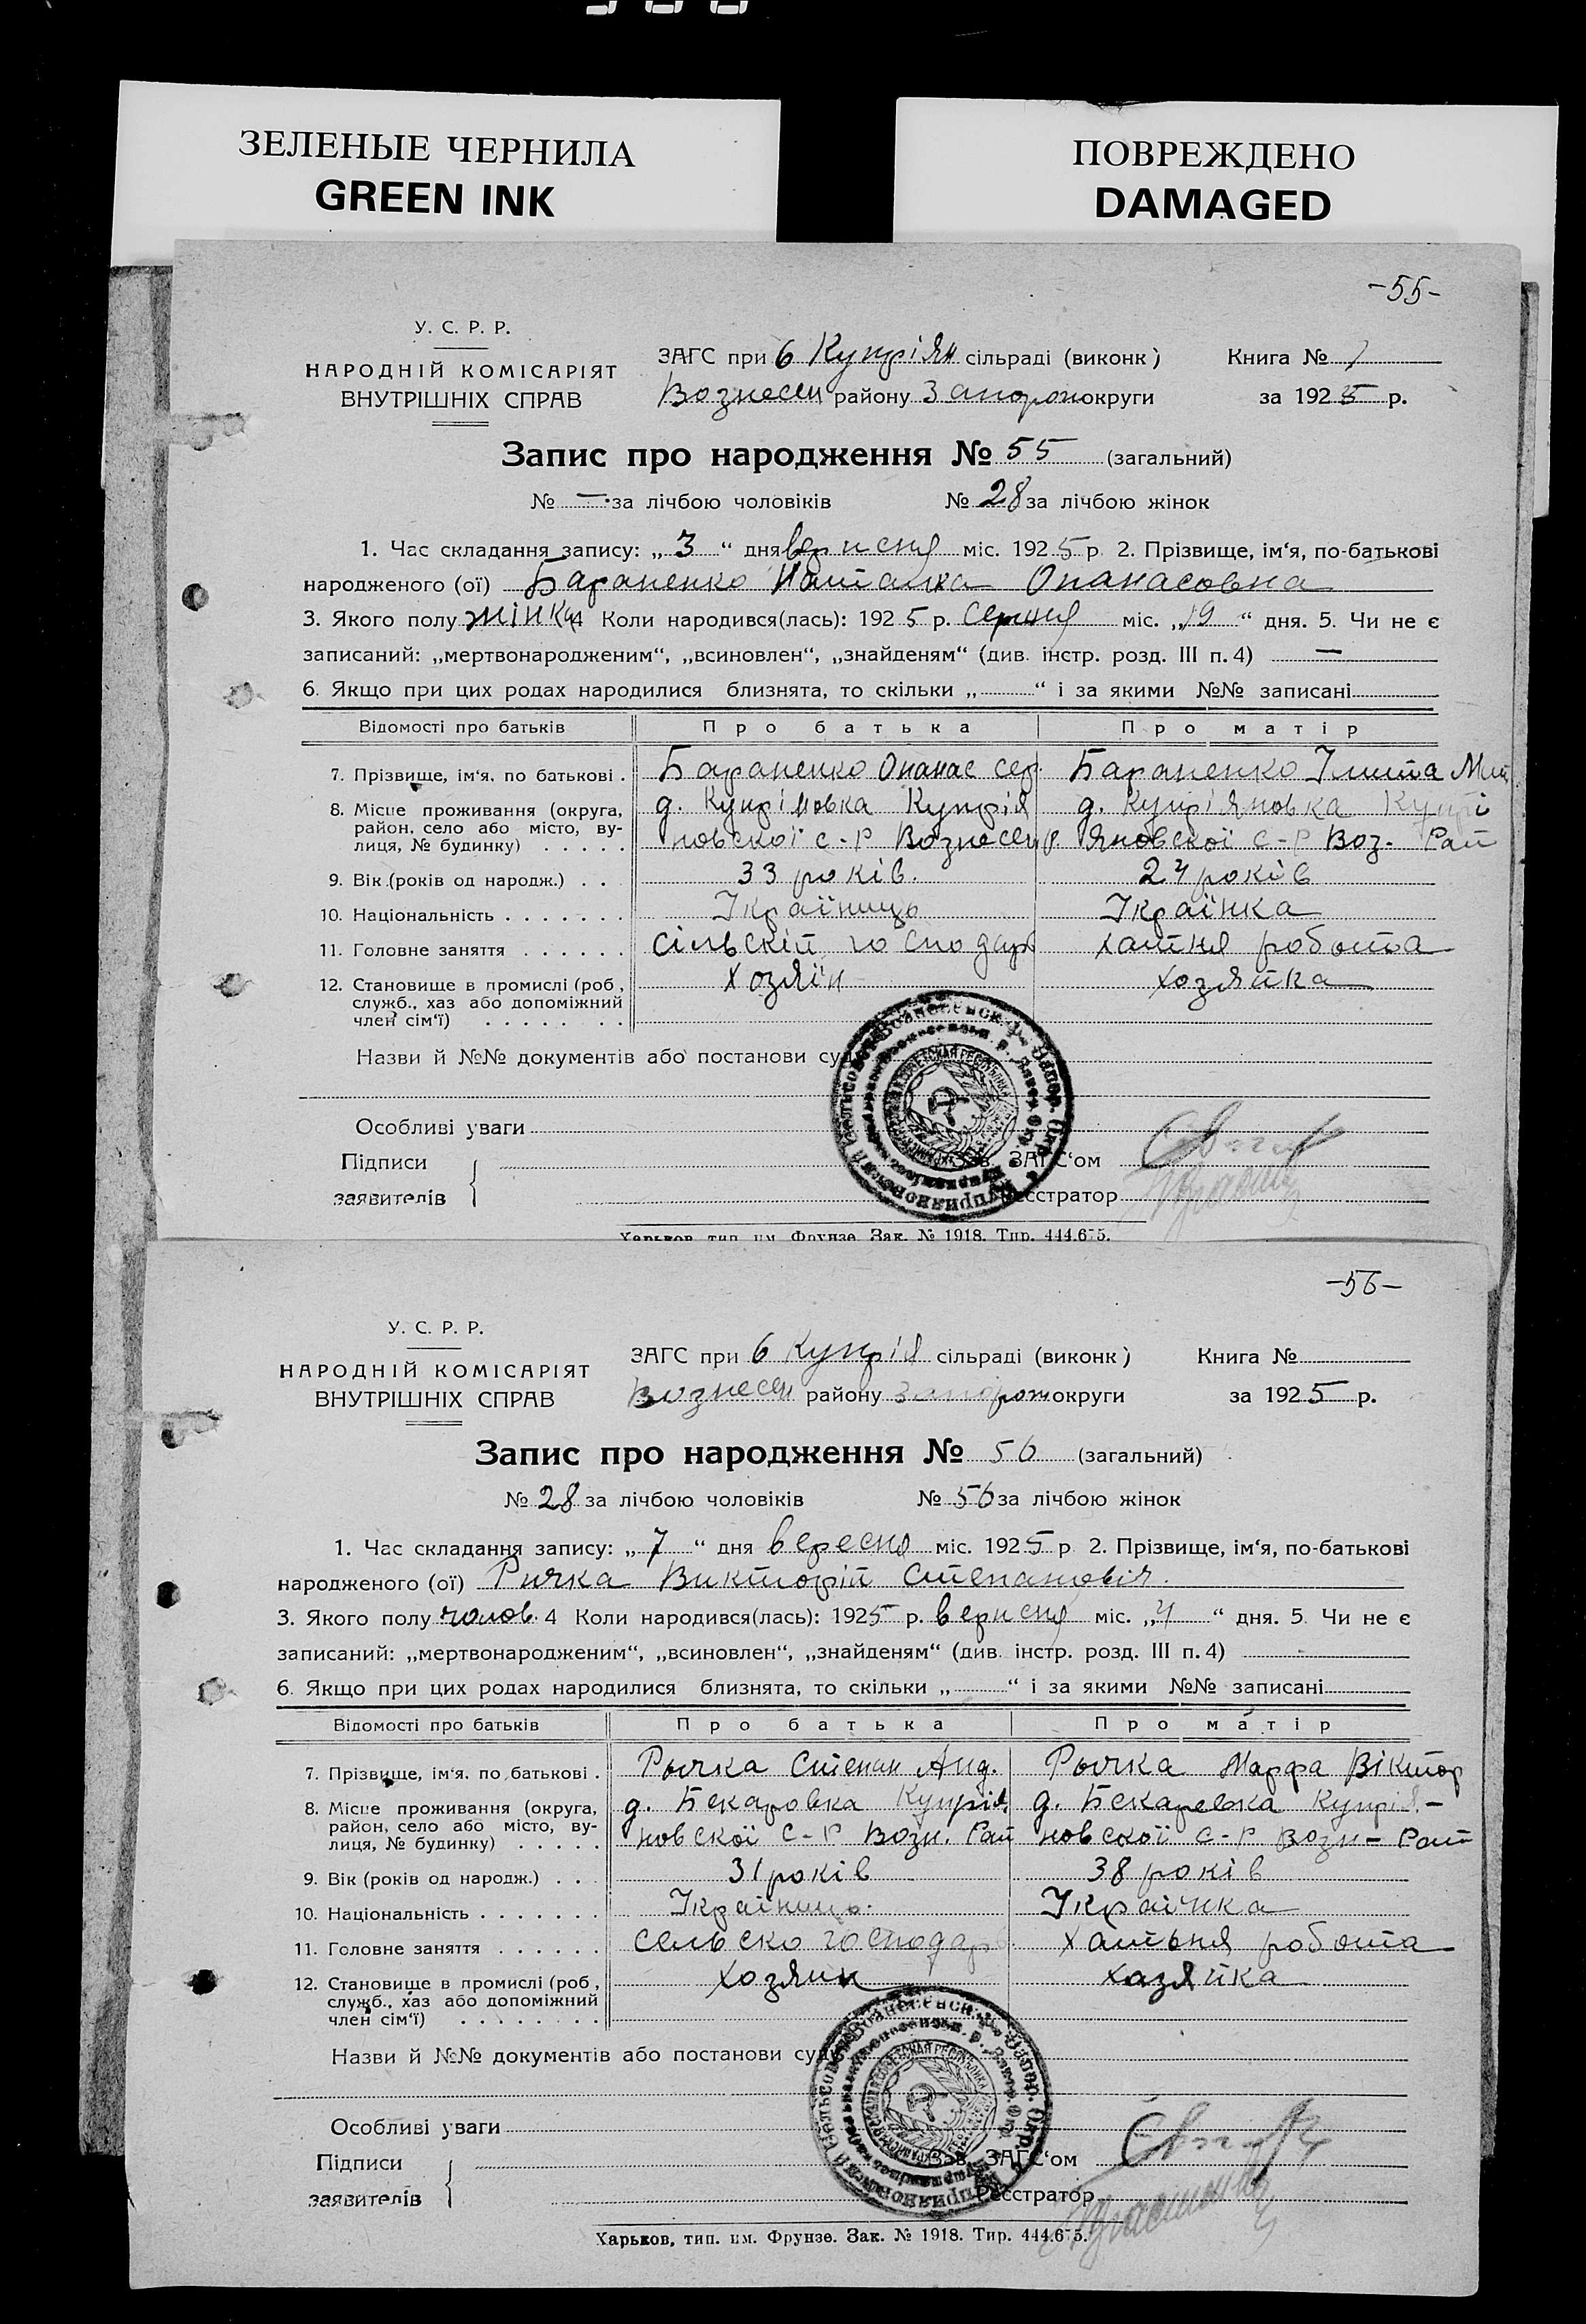 ЗЕЛЕНЫЕ ЧЕРНИЛА
GREEN INK
ПОВРЕЖДЕНО
DAMAGED
-55-
У. С. Р. Р.
НАРОДНІЙ КОМІСАРІЯТ
ВНУТРІШНІХ СПРАВ
ЗАГС при б Купріян сільраді (виконк)
Вознесен району Запорож округи
Книга № 1
за 1925 р.
Запис про народження № 55 (загальний)
№ — за лічбою чоловіків № 28 за лічбою жінок
1. Час складання запису: „ 3 “ дня верисня міс. 1925 р. 2. Прізвище, ім‘я, по-батькові
народженого (ої) Бараненко Наталка Опанасовна
3. Якого полу жінки 4 Коли народився(лась): 1925 р. серпня міс. „19 “ дня. 5. Чи не є
записаний: „мертвонародженим“, „всиновлен“, „знайденям“ (див. інстр. розд. III п. 4) —
6. Якщо при цих родах народилися близнята, то скільки „ “ і за якими №№ записані
Відомості про батьків Про батька Про матір
7. Прізвище, ім‘я, по батькові . Бараненко Опанас сер. Бараненко
8. Місце проживання (округа, д. Купріновка Купрія д. Купріяновка Купрі
район, село або місто, ву- новскої с-р Вознесен р. яновскої с-р Воз- Рай
лиця, № будинку) . . . . .
9. Вік (років од народж.) . . 33 років. 24 років
10. Національність . . . . . . . Україниць Українка
11. Головне заняття . . . . . . сільскій господар хатня робота
12. Становище в промислі (роб., Хозяїн хозяйка
служб., хаз або допоміжний
член сім‘ї) . . . . . . . .
Назви й №№ документів або постанови суду
Особливі уваги
Підписи
заявителів
Зав. ЗАГС‘ом
Реєстратор
Харьков, тип. им. Фрунзе. Зак. № 1918. Тир. 444.675.
-56-
У. С. Р. Р.
НАРОДНІЙ КОМІСАРІЯТ
ВНУТРІШНІХ СПРАВ
ЗАГС при б Купрія сільраді (виконк)
Вознесен району Запорож округи
Книга №
за 1925 р.
Запис про народження № 56 (загальний)
№ 28 за лічбою чоловіків № 56 за лічбою жінок
1. Час складання запису: „ 7 “ дня вересня міс. 1925 р. 2. Прізвище, ім‘я, по-батькові
народженого (ої) Ричка Викторій Степановіч.
3. Якого полу чолов. 4 Коли народився(лась): 1925 р. верисня міс. „4 “ дня. 5. Чи не є
записаний: „мертвонародженим“, „всиновлен“, „знайденям“ (див. інстр. розд. III п. 4) -
6. Якщо при цих родах народилися близнята, то скільки „ “ і за якими №№ записані
Відомості про батьків Про батька Про матір
7. Прізвище, ім‘я, по батькові . Рычка Степан Анд. Рычка Марфа Віктор
8. Місце проживання (округа, д. Бекаровка Купрія д. Бекаревка Купрія-
район, село або місто, ву- новскої с-р Возн. Рай новскої с-р Возн- Рай
лиця, № будинку) . . . .
9. Вік (років од народж.) . . . 31 років 38 років
10. Національність . . . . . . . Україниць. Українка
11. Головне заняття . . . . . . сельско господар хатьня робота
12. Становище в промислі (роб., хозяин хазяйка
служб., хаз або допоміжний
член сім‘ї) . . . . . . . .
Назви й №№ документів або постанови суду
Особливі уваги
Підписи
заявителів
Зав. ЗАГС‘ом
Реєстратор
Харьков, тип. им. Фрунзе. Зак. № 1918. Тир. 444.675.